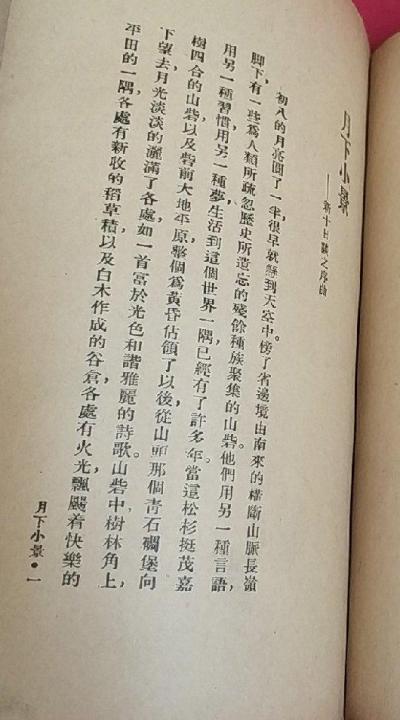 月下小景
——新十日談之序曲
初八的月亮圓了一半，很早就懸到天空中。傍了省邊境由南來的橫斷山脈長嶺
脚下，有一些爲人類所疏忽歷史所遺忘的殘餘種族聚集的山砦。他們用另一種言語，
用另一種習慣，用另一種夢，生活到這個世界一隅，已經有了許多年。當這松杉挺茂嘉
樹四合的山砦，以及砦前大地平原，整個爲黃昏佔領了以後，從山頭那個青石碉堡向
下望去，月光淡淡的灑滿了各處，如一首富於光色和諧雅麗的詩歌。山砦中，樹林角上，
平田的一隅，各處有新收的稻草積，以及白木作成的谷倉。各處有火光，飄颺着快樂的
月下小景·一